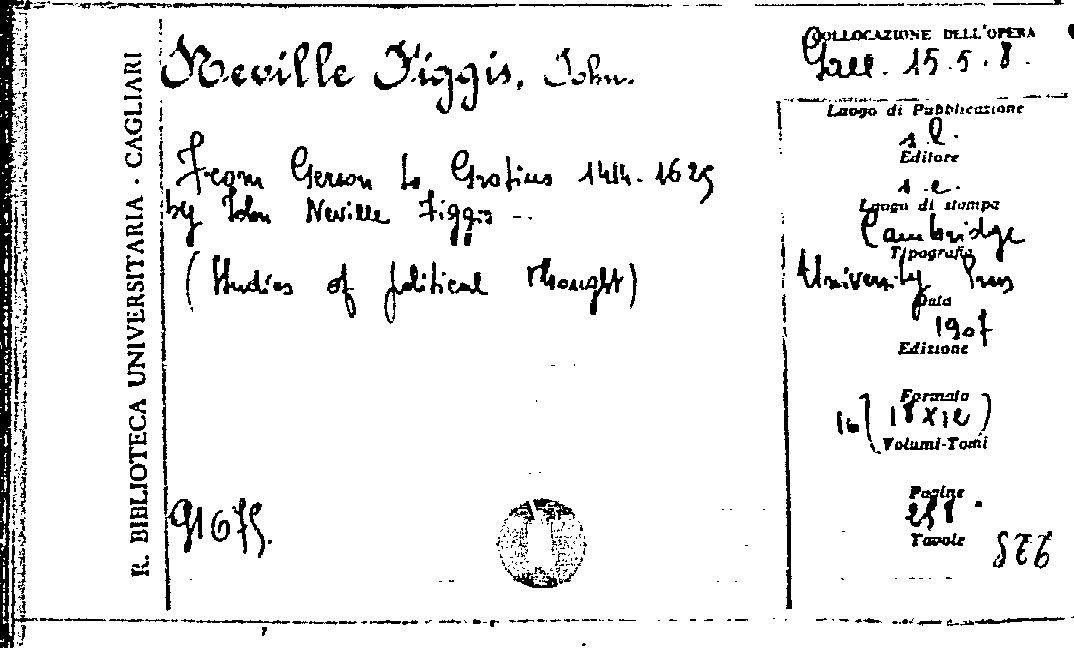 R. BIBLIOTECA UNIVERSITARIA . CAGLIARI
Neville Figgis, John.
From Gerson to Grotius 1414-1625
by John Neville Figgis --
(Studies of political thought)
91675.
COLLOCAZIONE DELL'OPERA
Gall. 15.5.8.
Luogo di Pubblicazione
s. l.
Editore
s. e.
Luogo di stampa
Cambridge
Tipografia
University Press
Data
1907
Edizione
Formato
16 (18x12)
Volumi-Tomi
Pagine
258
Tavole